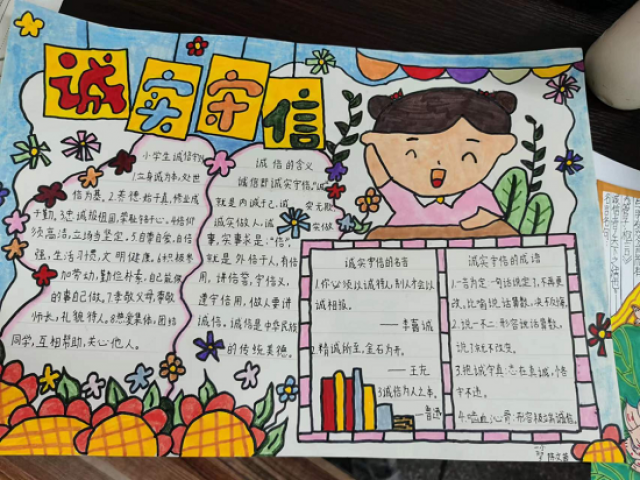 诚实守信
小学生诚信守则
1.立身诚为本,处世
信为基。2.养德始于真,修业成
于勤。3.忠诚报祖国,荣耻
须高洁,立场当坚定。5.自尊自爱,自信
强,生活习惯,文明健康。6.积极参
加劳动,勤俭朴素,自己能做
的事自己做。7.孝敬父母,尊敬
师长,礼貌待人。8.热爱集体,团结
同学,互相帮助,关心他人。
诚信的含义
诚信即诚实守信,"诚"
就是内诚于心,诚
诚实做人,诚
事,实事求是;"信",
就是外信于人,有信
用,讲信誉,守信义。
遵守信用,做人要讲
诚信。诚信是中华民族
的传统美德。
诚实守信的名言
1.你必须以诚待人,别人才会以
诚相报。
——李嘉诚
2.精诚所至,金石为开。
——王充
3.诚信为人之本。
——鲁迅
诚实守信的成语
1.一言为定:一句话说定了,不再更
改,比喻说话算数,决不反悔。
2.说一不二:形容说话算数,
说了就不改变。
3.抱诚守真:志在真诚,恪
守不违。
4.